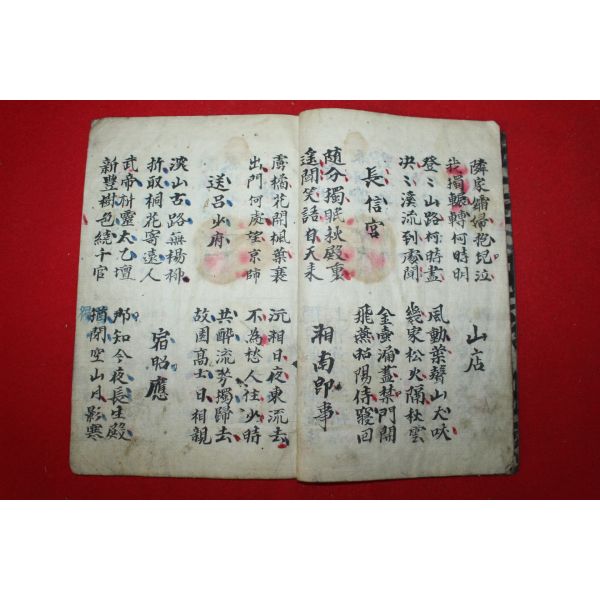 隣家孀婦抱兒泣
我獨輾轉何時明
山店
登〻山路何時盡
決〻溪流到處聞
風動葉聲山犬吠
幾家松火隔秋雲
長信宮
金壺漏盡禁門開
飛燕昭陽侍寢回
隨分獨眠秋殿重
遙聞笑語自天來
湘南即事
盧橘花開楓葉衰
出門何處望京師
沅湘日夜東流去
不為愁人住少時
送呂少府
共醉流芳獨歸去
故園高士日相親
深山古路無楊柳
折取桐花寄遠人
宿昭應
武帝祈靈太乙壇
新豐樹色繞千官
那知今夜長生殿
猶閉空山月影寒